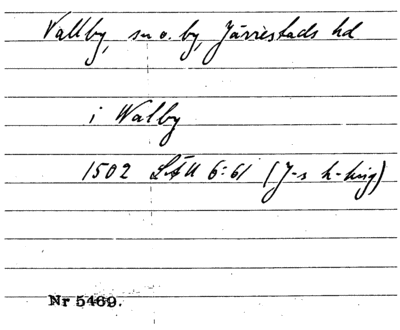 Vallby, sn o. by, Järrestads hd
i Walby
1502 LÄU 6:61 (J-s h-ting)
Nr 5469.